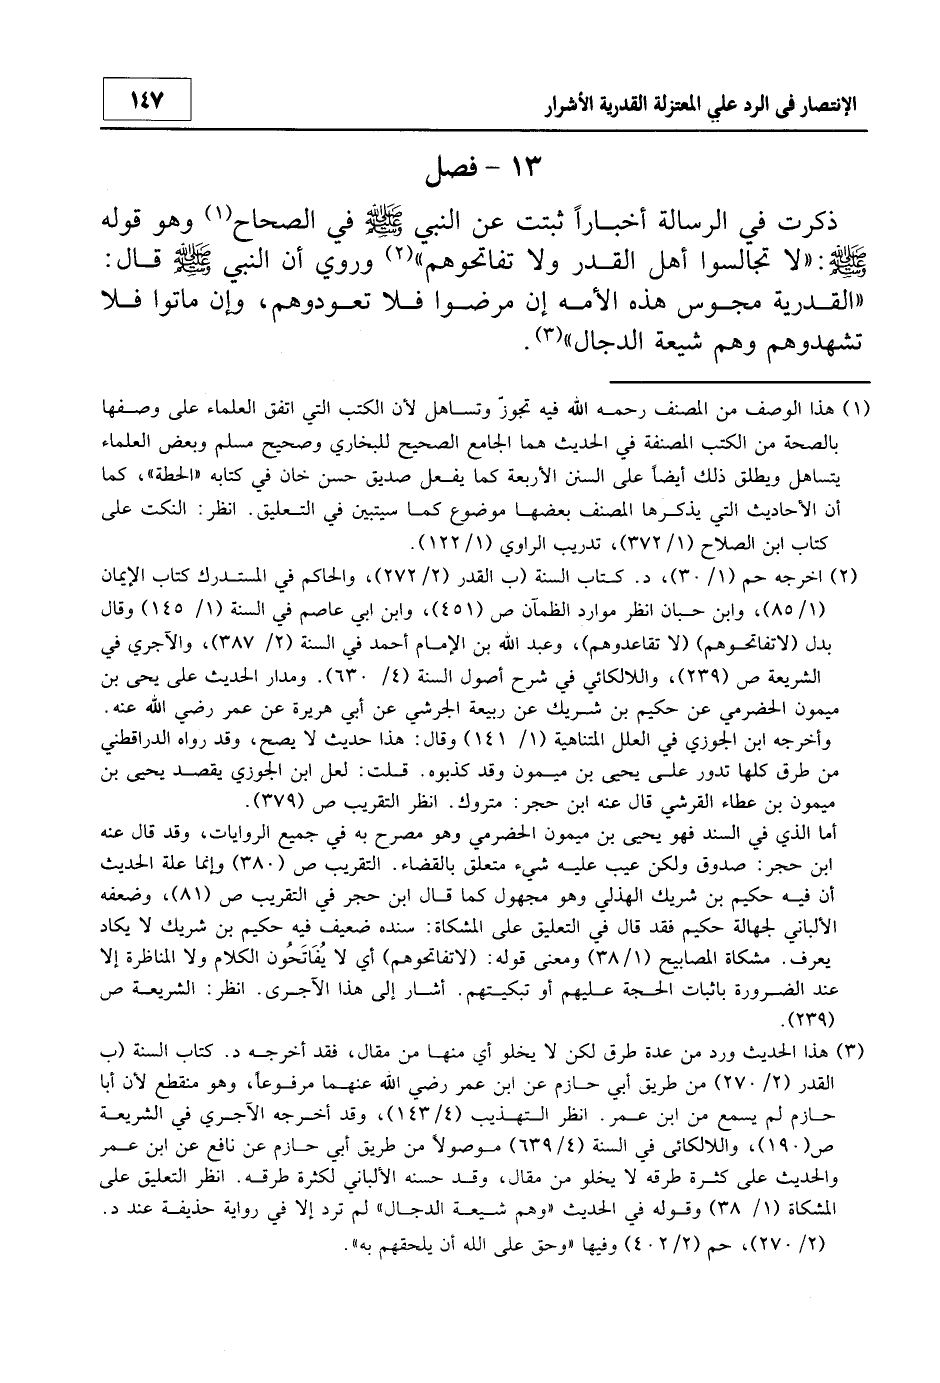 الإنتصار في الرد علي المعتزلة القدرية الأشرار
١٤٧
١٣ - فصل
ذكرت في الرسالة أخباراً ثبتت عن النبي ﷺ في الصحاح(١) وهو قوله
ﷺ: «لا تجالسوا أهل القدر ولا تفاتحوهم»(٢) وروي أن النبي ﷺ قال:
«القدرية مجوس هذه الأمه إن مرضوا فلا تعودوهم، وإن ماتوا فلا
تشهدوهم وهم شيعة الدجال»(٣).
(١) هذا الوصف من المصنف رحمه الله فيه تجوزّ وتساهل لأن الكتب التي اتفق العلماء على وصفها
بالصحة من الكتب المصنفة في الحديث هما الجامع الصحيح للبخاري وصحيح مسلم وبعض العلماء
يتساهل ويطلق ذلك أيضاً على السنن الأربعة كما يفعل صديق حسن خان في كتابه «الحطة»، كما
أن الأحاديث التي يذكرها المصنف بعضها موضوع كما سيتبين في التعليق. انظر: النكت على
كتاب ابن الصلاح (١/ ٣٧٢)، تدريب الراوي (١/ ١٢٢).
(٢) اخرجه حم (١/ ٣٠)، د. كتاب السنة (ب القدر (٢/ ٢٧٢)، والحاكم في المستدرك كتاب الإيمان
(١/ ٨٥)، وابن حبان انظر موارد الظمآن ص (٤٥١)، وابن ابي عاصم في السنة (١/ ١٤٥) وقال
بدل (لاتفاتحوهم) (لا تقاعدوهم)، وعبد الله بن الإمام أحمد في السنة (٢/ ٣٨٧)، والآجري في
الشريعة ص (٢٣٩)، واللالكائي في شرح أصول السنة (٤/ ٦٣٠). ومدار الحديث على يحى بن
ميمون الحضرمي عن حكيم بن شريك عن ربيعة الجرشي عن أبي هريرة عن عمر رضي الله عنه.
وأخرجه ابن الجوزي في العلل المتناهية (١/ ١٤١) وقال: هذا حديث لا يصح، وقد رواه الدراقطني
من طرق كلها تدور على يحيى بن ميمون وقد كذبوه. قلت: لعل ابن الجوزي يقصد يحيى بن
ميمون بن عطاء القرشي قال عنه ابن حجر: متروك. انظر التقريب ص (٣٧٩).
أما الذي في السند فهو يحيى بن ميمون الحضرمي وهو مصرح به في جميع الروايات، وقد قال عنه
ابن حجر: صدوق ولكن عيب عليه شيء متعلق بالقضاء. التقريب ص (٣٨٠) وإنما علة الحديث
أن فيه حكيم بن شريك الهذلي وهو مجهول كما قال ابن حجر في التقريب ص (٨١)، وضعفه
الألباني لجهالة حكيم فقد قال في التعليق على المشكاة: سنده ضعيف فيه حكيم بن شريك لا يكاد
يعرف. مشكاة المصابيح (١/ ٣٨) ومعنى قوله: (لاتفاتحوهم) أي لا يُفَاتَحُون الكلام ولا المناظرة إلا
عند الضرورة باثبات الحجة عليهم أو تبكيتهم. أشار إلى هذا الآجرى. انظر: الشريعة ص
(٢٣٩).
(٣) هذا الحديث ورد من عدة طرق لكن لا يخلو أي منها من مقال، فقد أخرجه د. كتاب السنة (ب
القدر (٢/ ٢٧٠) من طريق أبي حازم عن ابن عمر رضي الله عنهما مرفوعاً، وهو منقطع لأن أبا
حازم لم يسمع من ابن عمر. انظر التهذيب (٤/ ١٤٣)، وقد أخرجه الآجري في الشريعة
ص(١٩٠)، واللالكائى في السنة (٤/ ٦٣٩) موصولاً من طريق أبي حازم عن نافع عن ابن عمر
والحديث على كثرة طرقه لا يخلو من مقال، وقد حسنه الألباني لكثرة طرقه. انظر التعليق على
المشكاة (١/ ٣٨) وقوله في الحديث «وهم شيعة الدجال» لم ترد إلا في رواية حذيفة عند د.
(٢/ ٢٧٠)، حم (٢/ ٤٠٢) وفيها «وحق على الله أن يلحقهم به».